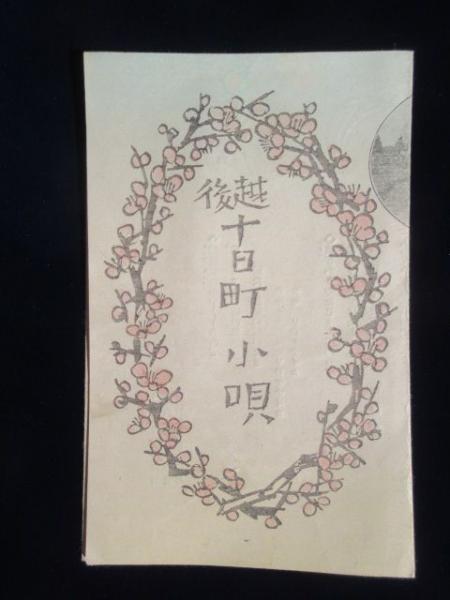 越後
十日町小唄